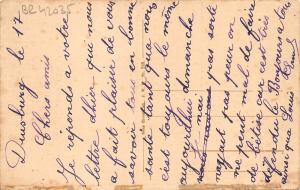 BR 42035
Duisburg le 17
Chers amis
Je réponds a votre
lettre d'hier qui nous
a fait plaisir de vous
savoir tous en bonne
santé tant qu'a nous
c'est toujours le même
aujourd'hui dimanche
ne
n'ayant pas peur on
me peut mal de fair
de bêtise car est très
défendu le Bonjours a tous
ainsi que Louis